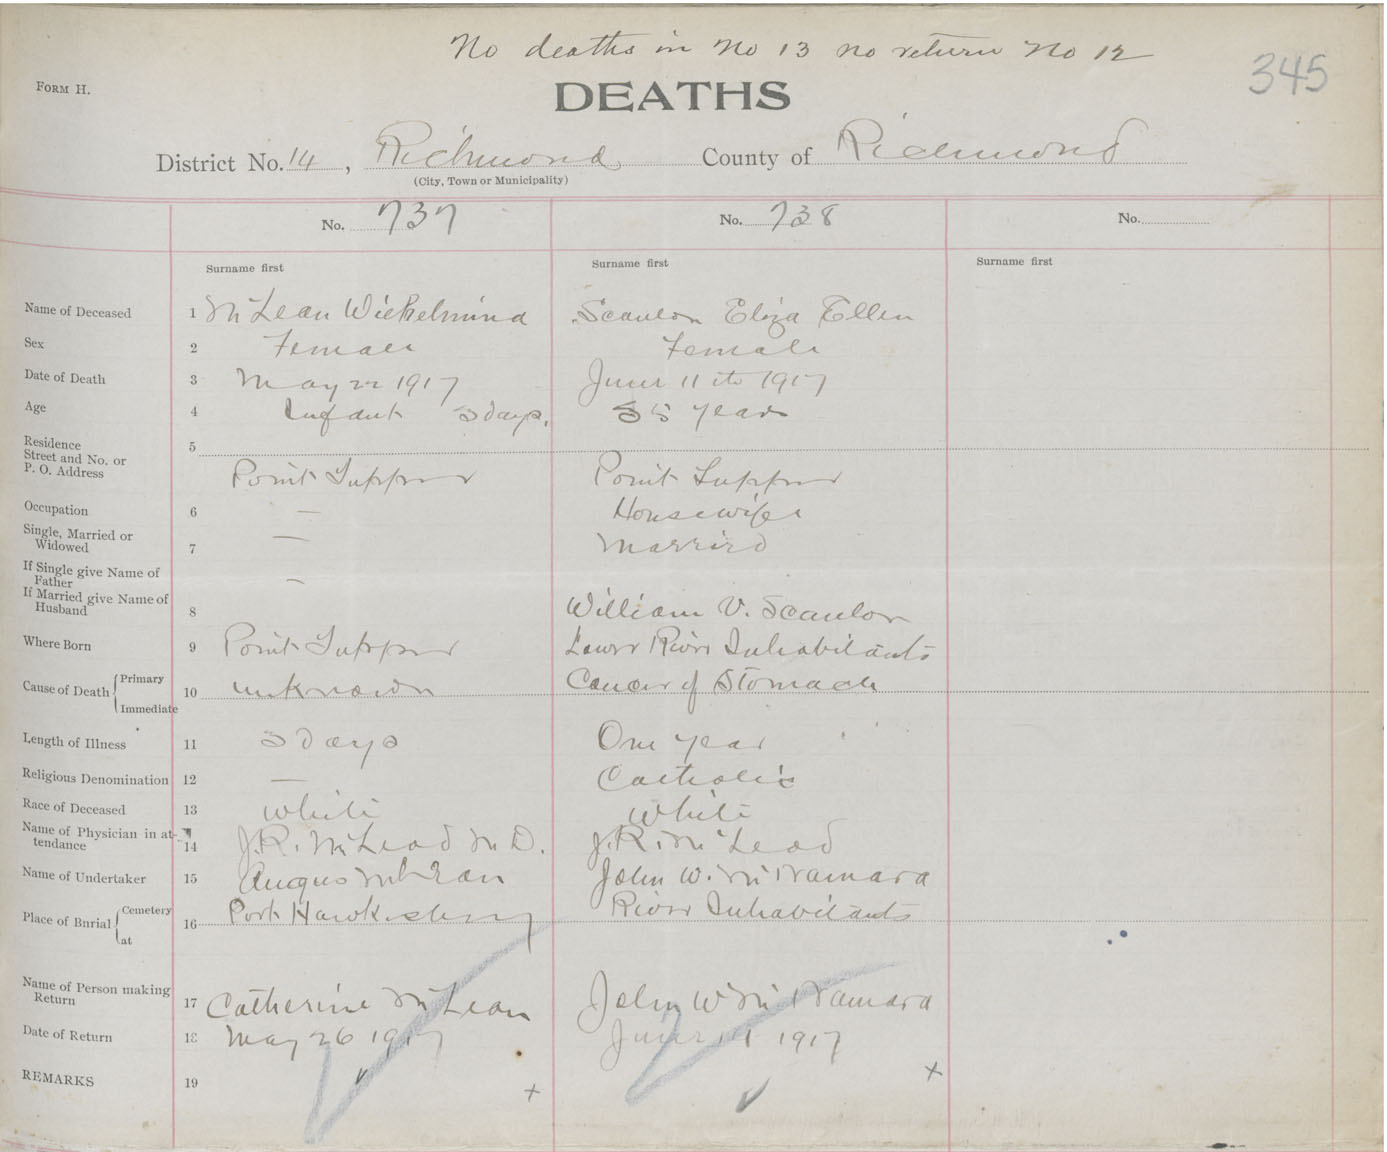 No deaths in No 13 no return No 12
345
FORM H.
DEATHS
District No. 14, Richmond County of Richmond
(City, Town or Municipality)
No. 737 No. 738 No.
Surname first Surname first Surname first
Name of Deceased 1 McLean Wickelmina Scanlon Eliza Ellen
Sex 2 Female Female
Date of Death 3 May 22 1917 June 11th 1917
Age 4 Infant 3 days. 55 years
Residence
Street and No. or
P. O. Address 5 Point Tupper Point Tupper
Occupation 6 — Housewife
Single, Married or
Widowed 7 — Married
If Single give Name of
Father —
If Married give Name of
Husband 8 William V. Scanlon
Where Born 9 Point Tupper Lower River Inhabitants
Cause of Death Primary
Immediate 10 unknown Cancer of Stomach
Length of Illness 11 3 days One year
Religious Denomination 12 — Catholic
Race of Deceased 13 White White
Name of Physician in at-
tendance 14 J.R. McLeod M.D. J.R. McLeod
Name of Undertaker 15 Angus McLean John W. McNamara
Place of Burial Cemetery
at 16 Port Hawkesbury River Inhabitants
Name of Person making
Return 17 Catherine McLean John W McNamara
Date of Return 18 May 26 1917 June 1917
REMARKS 19